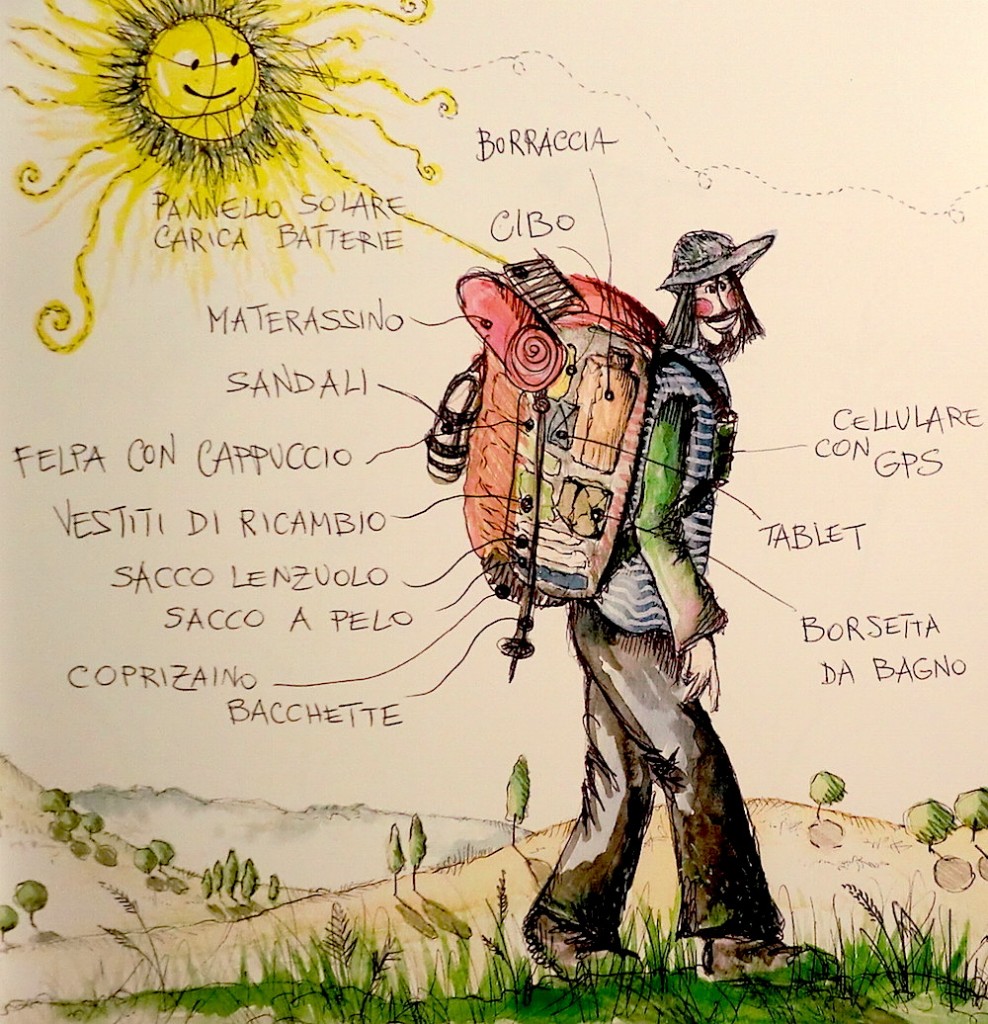 BORRACCIA
CIBO
PANNELLO SOLARE
CARICA BATTERIE
MATERASSINO
SANDALI
FELPA CON CAPPUCCIO
VESTITI DI RICAMBIO
SACCO LENZUOLO
SACCO A PELO
COPRIZAINO
BACCHETTE
CELLULARE
CON GPS
TABLET
BORSETTA
DA BAGNO